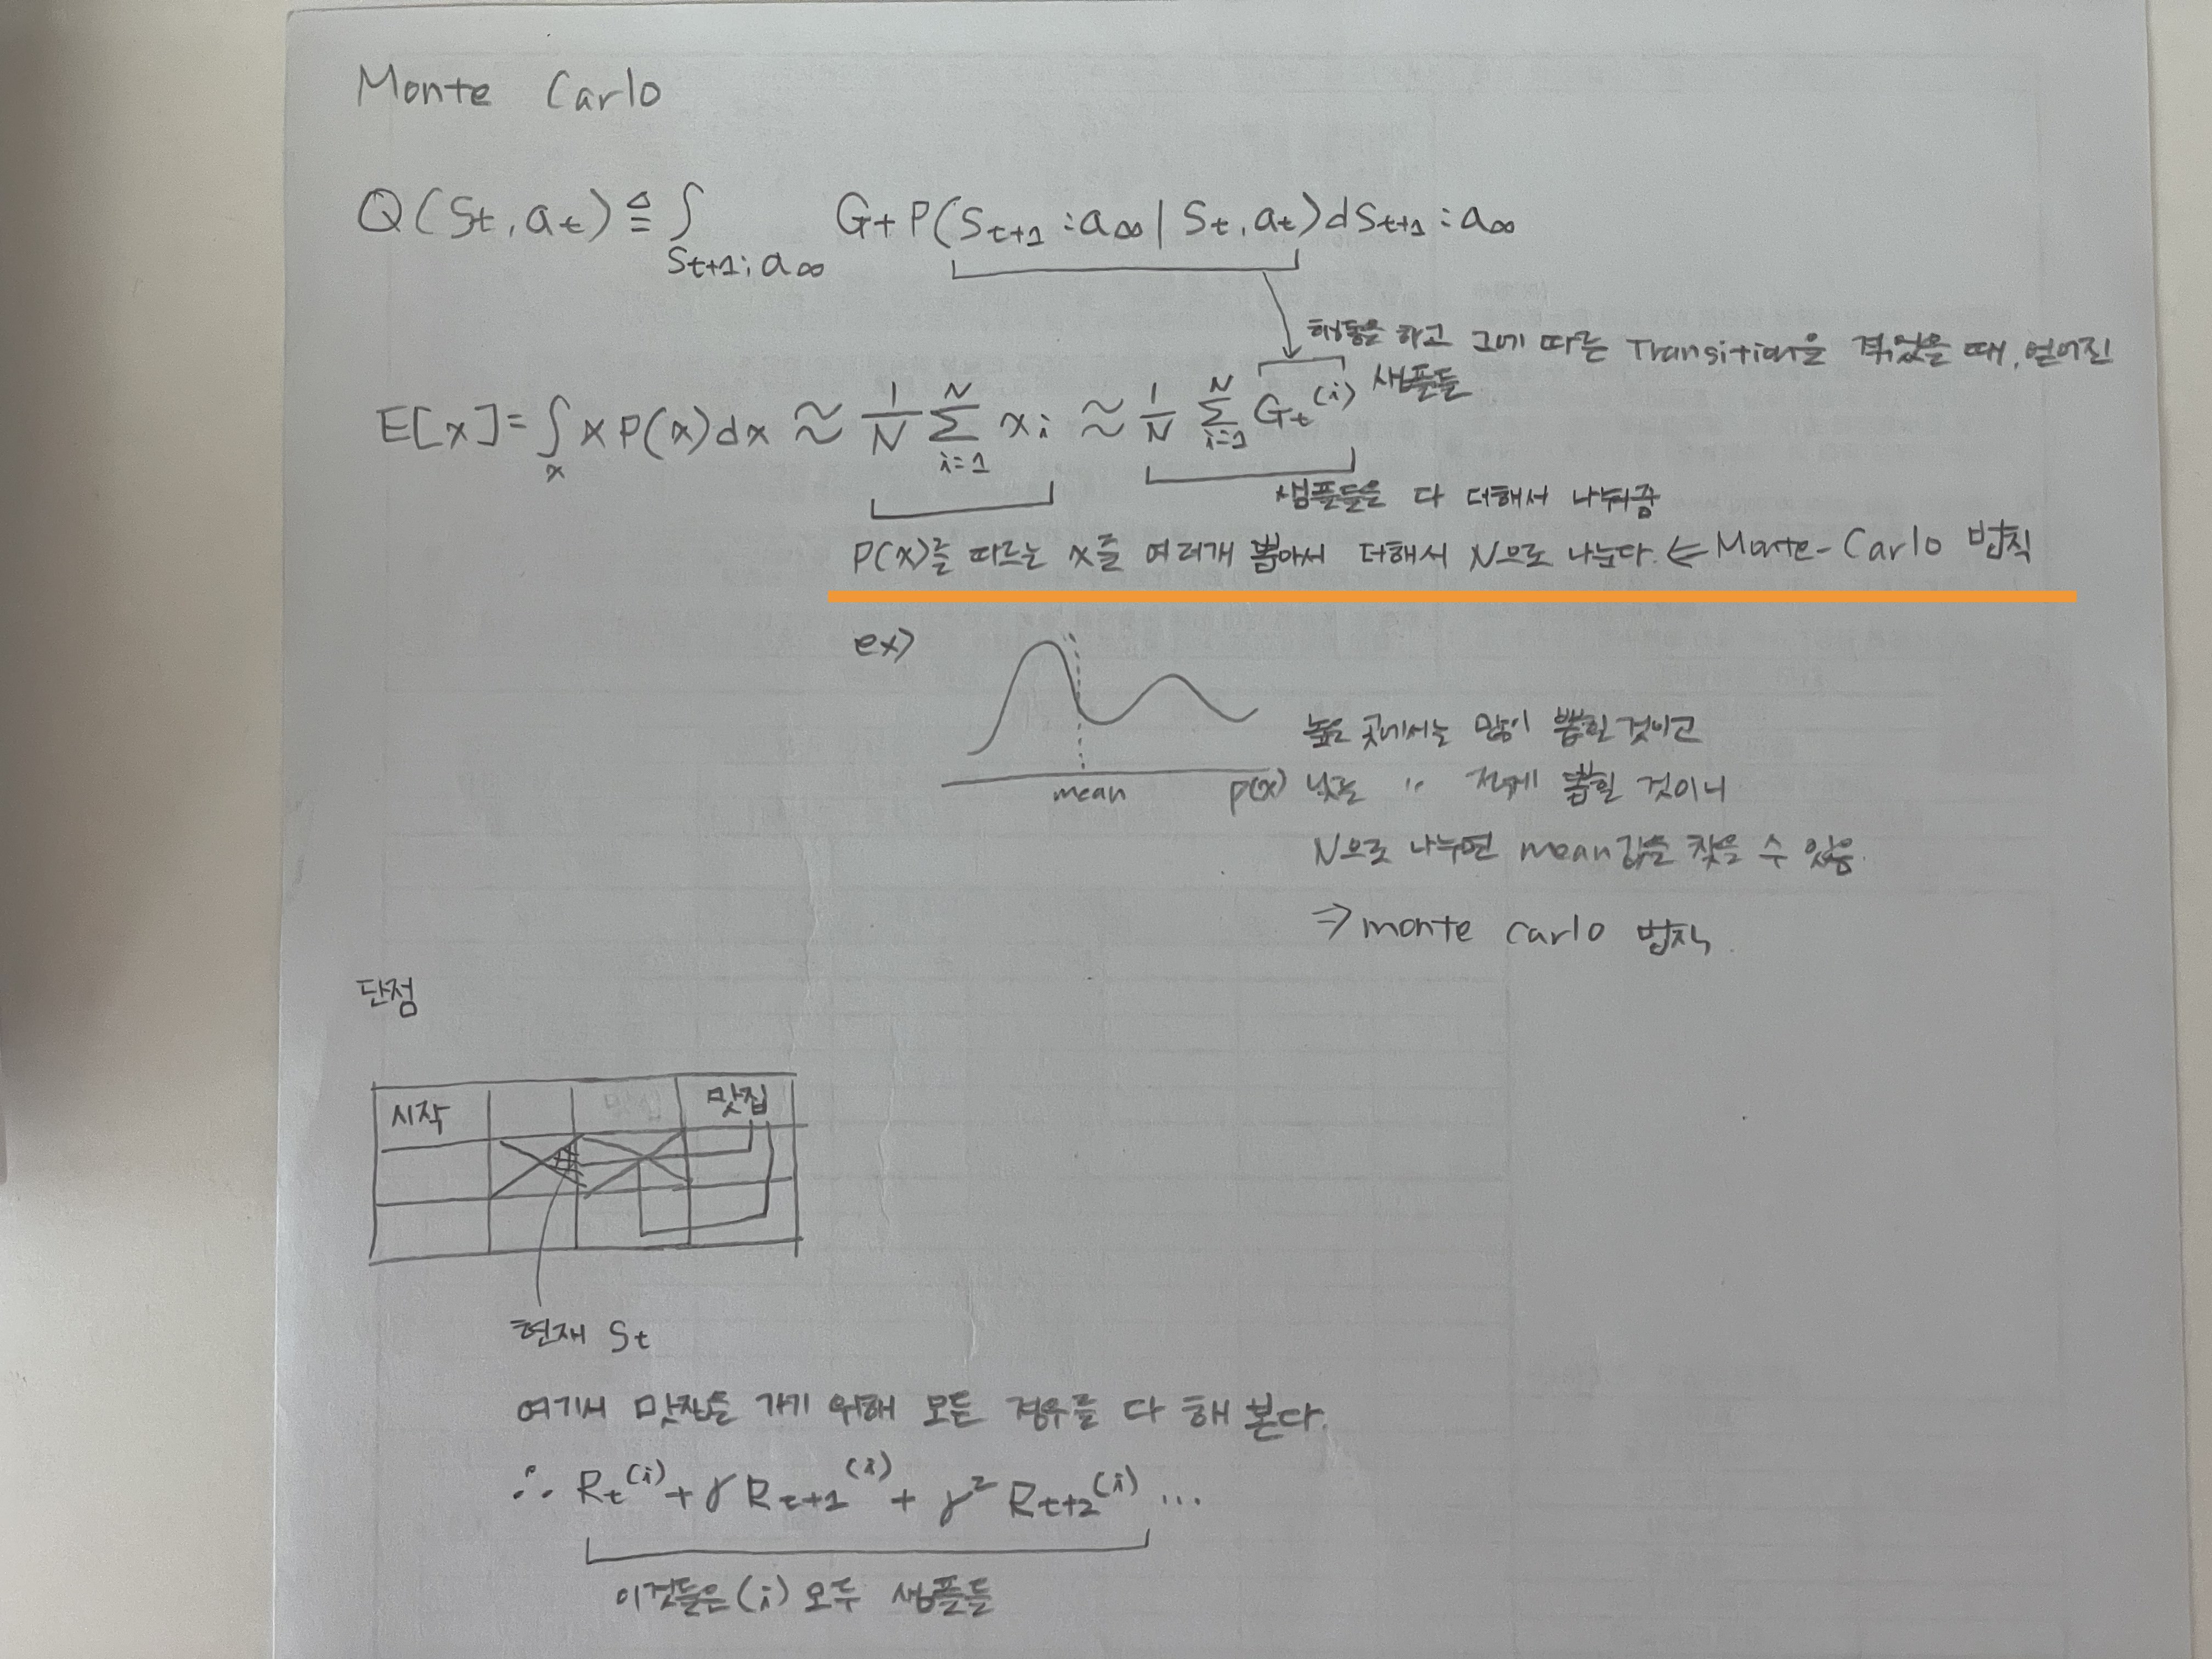 Monte Carlo
Q(St, at) ≜ ∫ St+1:a∞ Gt P(St+1:a∞ | St, at) dSt+1:a∞
행동을 하고 그에 따른 Transition을 겪었을 때, 얻어진
샘플들
E[x] = ∫x x P(x)dx ≈ 1/N Σ i=1 N xi ≈ 1/N Σ i=1 N Gt(i)
샘플들을 다 더해서 나눠줌
P(x)를 따르는 x를 여러개 뽑아서 더해서 N으로 나눈다. ⇐ Monte-Carlo 법칙
ex>
높은 곳에서는 많이 뽑힐 것이고
mean P(x) 낮은 〃 적게 뽑힐 것이니
N으로 나누면 mean값을 찾을 수 있음.
⇒ monte carlo 법칙.
단점
시작 맛집
현재 St
여기서 맛집을 가기 위해 모든 경우를 다 해 본다.
∴ Rt(i) + γ Rt+1(i) + γ² Rt+2(i) ...
이것들은 (i) 모두 샘플들